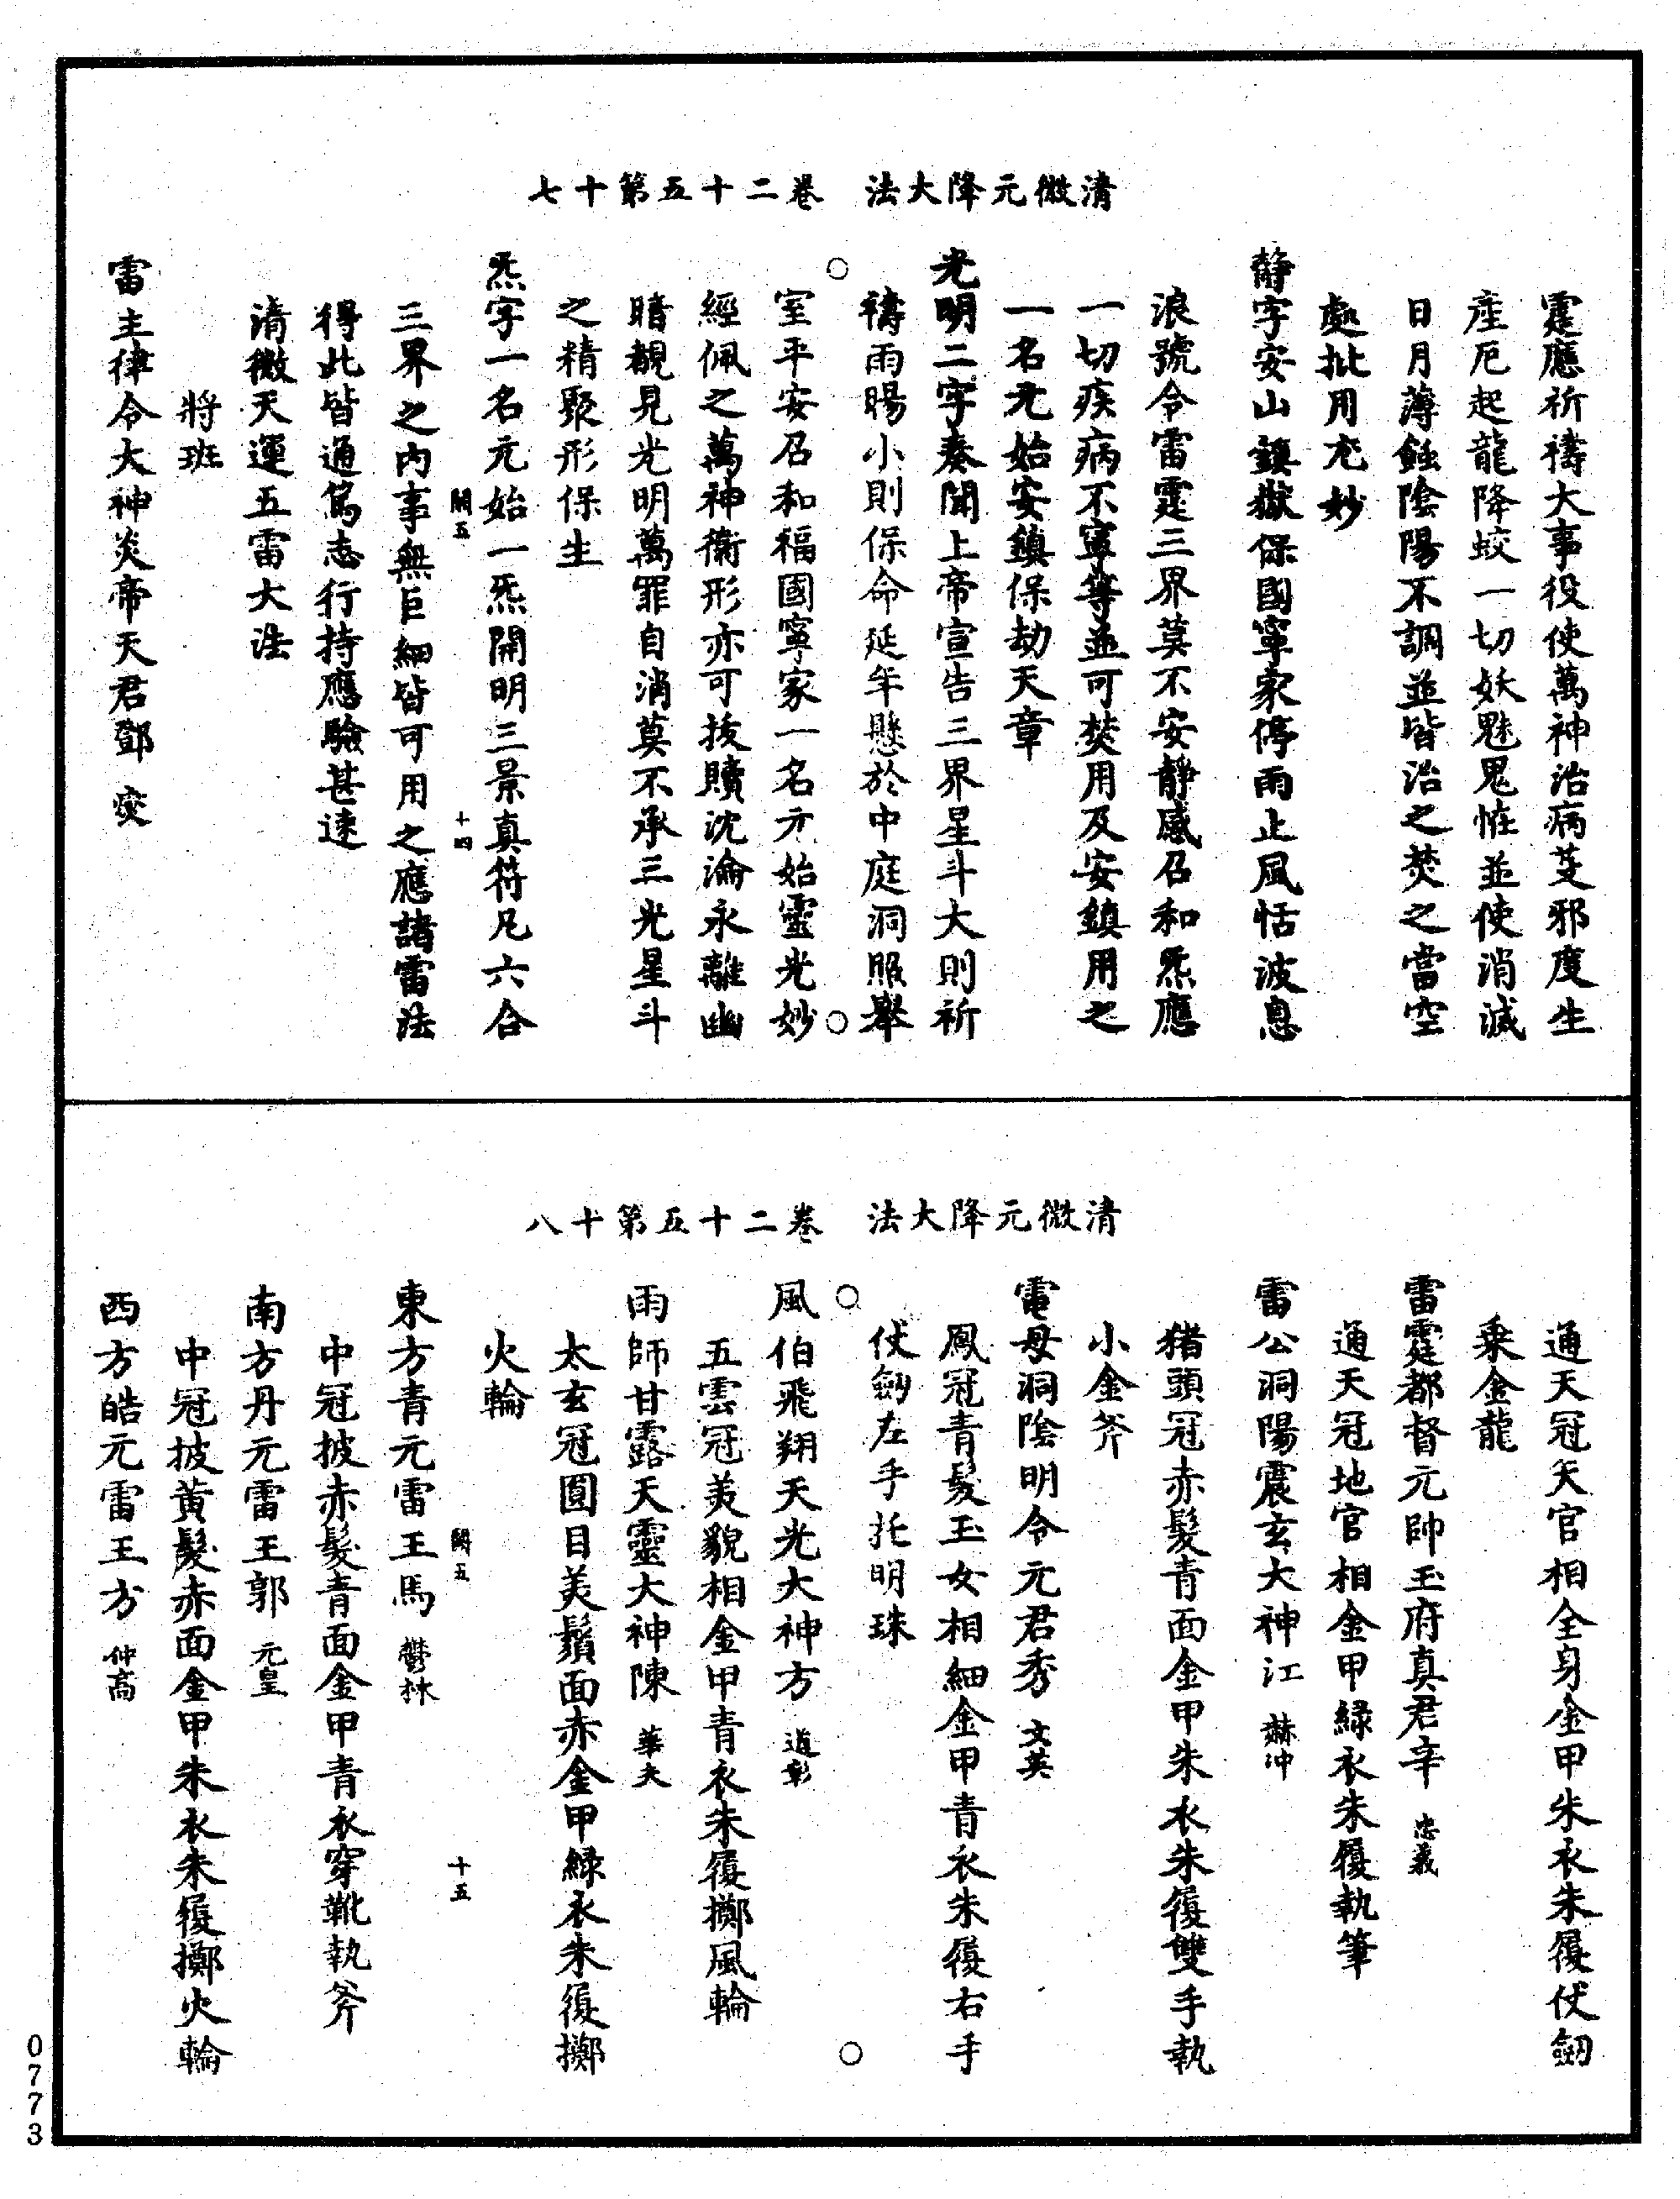 清微元降大法　卷二十五第十七
霆應祈禱大事役使萬神治病芟邪度生
產厄起龍降蛟一切妖魅鬼恠並使消滅
日月薄蝕陰陽不調並皆治之焚之當空
處批用尤妙
靜字安山鎮嶽保國寧家停雨止風恬波息
浪號令雷霆三界莫不安靜感召和炁應
一切疾病不寧等並可焚用及安鎮用之
一名元始安鎮保劫天章
光明二字奏聞上帝宣告三界星斗大則祈
禱雨暘小則保命延年懸於中庭洞照舉
室平安召和福國寧家一名元始靈光妙
經佩之萬神衛形亦可拔贖沈淪永離幽
暗覩見光明萬罪自消莫不承三光星斗
之精聚形保生
炁字一名元始一炁開明三景真符凡六合
關五　十四
三界之內事無巨細皆可用之應諸雷法
得此皆通篤志行持應驗甚速
清微天運五雷大法
將班
雷主律令大神炎帝天君鄧 燮
清微元降大法　卷二十五第十八
通天冠天官相全身金甲朱衣朱履仗劒
乘金龍
雷霆都督元帥玉府真君辛 忠義
通天冠地官相金甲綠衣朱履執筆
雷公洞陽震玄大神江 赫冲
猪頭冠赤髮青面金甲朱衣朱履雙手執
小金斧
電母洞陰明令元君秀 文英
鳳冠青髮玉女相細金甲青衣朱履右手
仗劒左手托明珠
風伯飛翔天光大神方 道彰
五雲冠美貌相金甲青衣朱履擲風輪
雨師甘露天靈大神陳 華夫
太玄冠圓目美鬚面赤金甲綠衣朱履擲
火輪
關五　十五
東方青元雷王馬 鬱林
中冠披赤髮青面金甲青衣穿靴執斧
南方丹元雷王郭 元皇
中冠披黃髮赤面金甲朱衣朱履擲火輪
西方皓元雷王方 仲高
0773